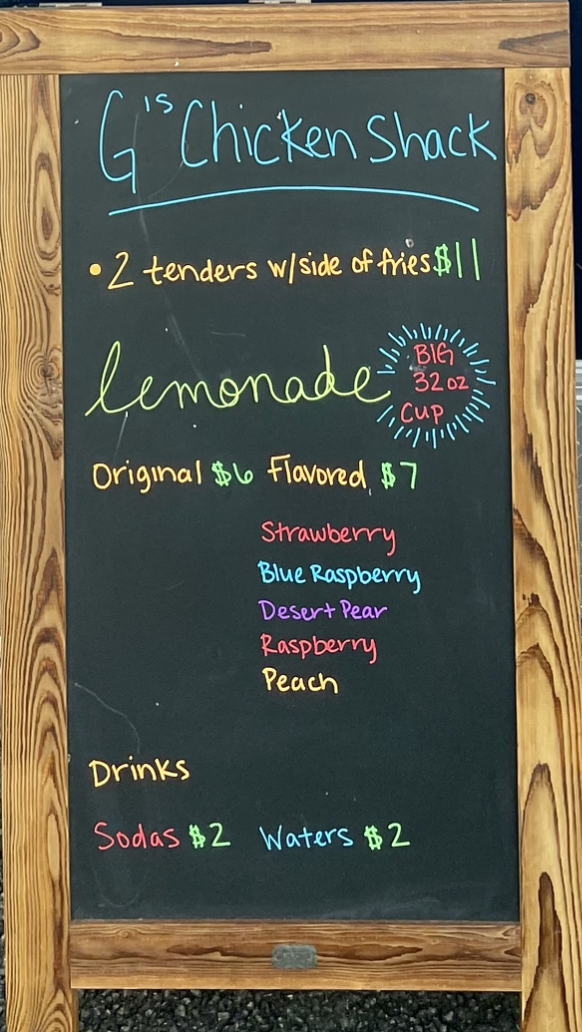 G's Chicken Shack
• 2 tenders w/side of fries $11
lemonade
BIG
32 oz
Cup
Original $6 Flavored $7
Strawberry
Blue Raspberry
Desert Pear
Raspberry
Peach
Drinks
Sodas $2 Waters $2